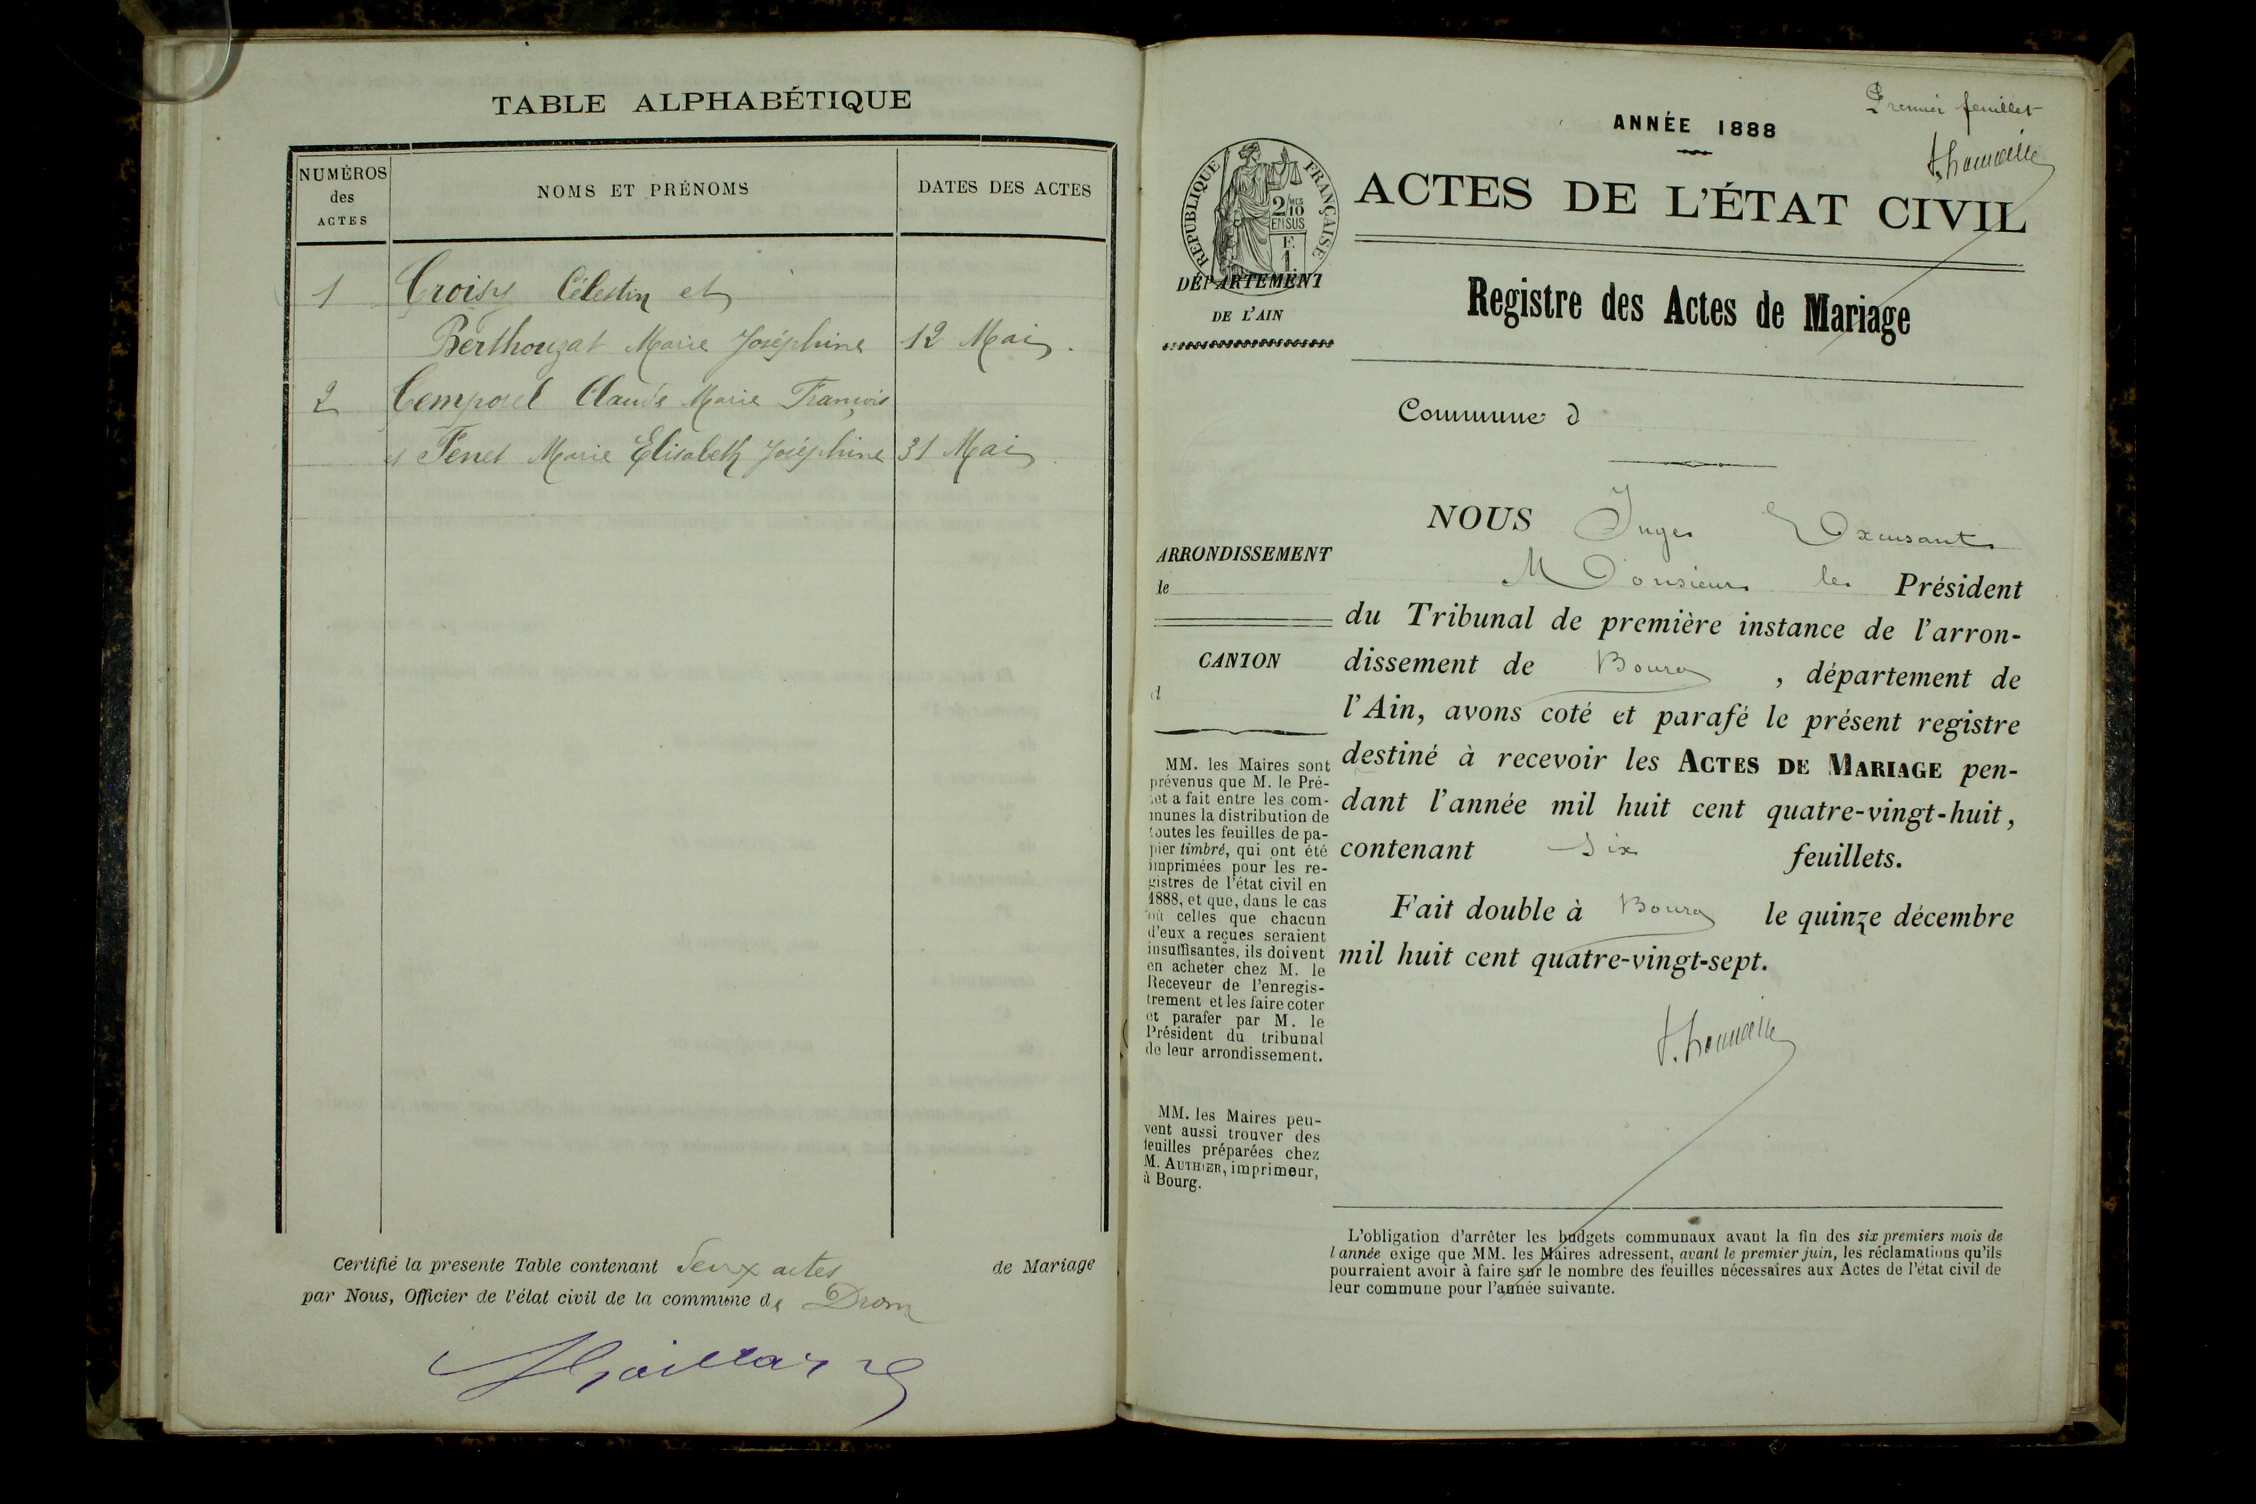 TABLE ALPHABÉTIQUE
NUMÉROS
des
ACTES
NOMS ET PRÉNOMS
DATES DES ACTES
1 Croisy Célestin et
Berthouzat Marie Joséphine 12 Mai.
2 Claude Marie François
et Fenet Marie Elisabeth Joséphine 31 Mai
Certifié la presente Table contenant deux actes de Mariage
par Nous, Officier de l'état civil de la commune de Drom
Premier feuillet
ANNÉE 1888
RÉPUBLIQUE FRANÇAISE
2/10 MES
EN SUS
F.
1
DÉPARTEMENT
DE L'AIN
ACTES DE L'ÉTAT CIVIL
Registre des Actes de Mariage
Commune d
ARRONDISSEMENT
de
CANTON
d
MM. les Maires sont
prévenus que M. le Pré-
fet a fait entre les com-
munes la distribution de
toutes les feuilles de pa-
pier timbré, qui ont été
imprimées pour les re-
gistres de l'état civil en
1888, et que, dans le cas
où celles que chacun
d'eux a reçues seraient
insuffisantes, ils doivent
en acheter chez M. le
Receveur de l'enregis-
trement et les faire coter
et parafer par M. le
Président du tribunal
de leur arrondissement.
MM. les Maires peu-
vent aussi trouver des
feuilles préparées chez
M. AUTHIER, imprimeur,
à Bourg.
NOUS Juge
Monsieur le Président
du Tribunal de première instance de l'arron-
dissement de Bourg, département de
l'Ain, avons coté et parafé le présent registre
destiné à recevoir les ACTES DE MARIAGE pen-
dant l'année mil huit cent quatre-vingt-huit,
contenant six feuillets.
Fait double à Bourg le quinze décembre
mil huit cent quatre-vingt-sept.
L'obligation d'arrêter les budgets communaux avant la fin des six premiers mois de
l'année exige que MM. les Maires adressent, avant le premier juin, les réclamations qu'ils
pourraient avoir à faire sur le nombre des feuilles nécessaires aux Actes de l'état civil de
leur commune pour l'année suivante.